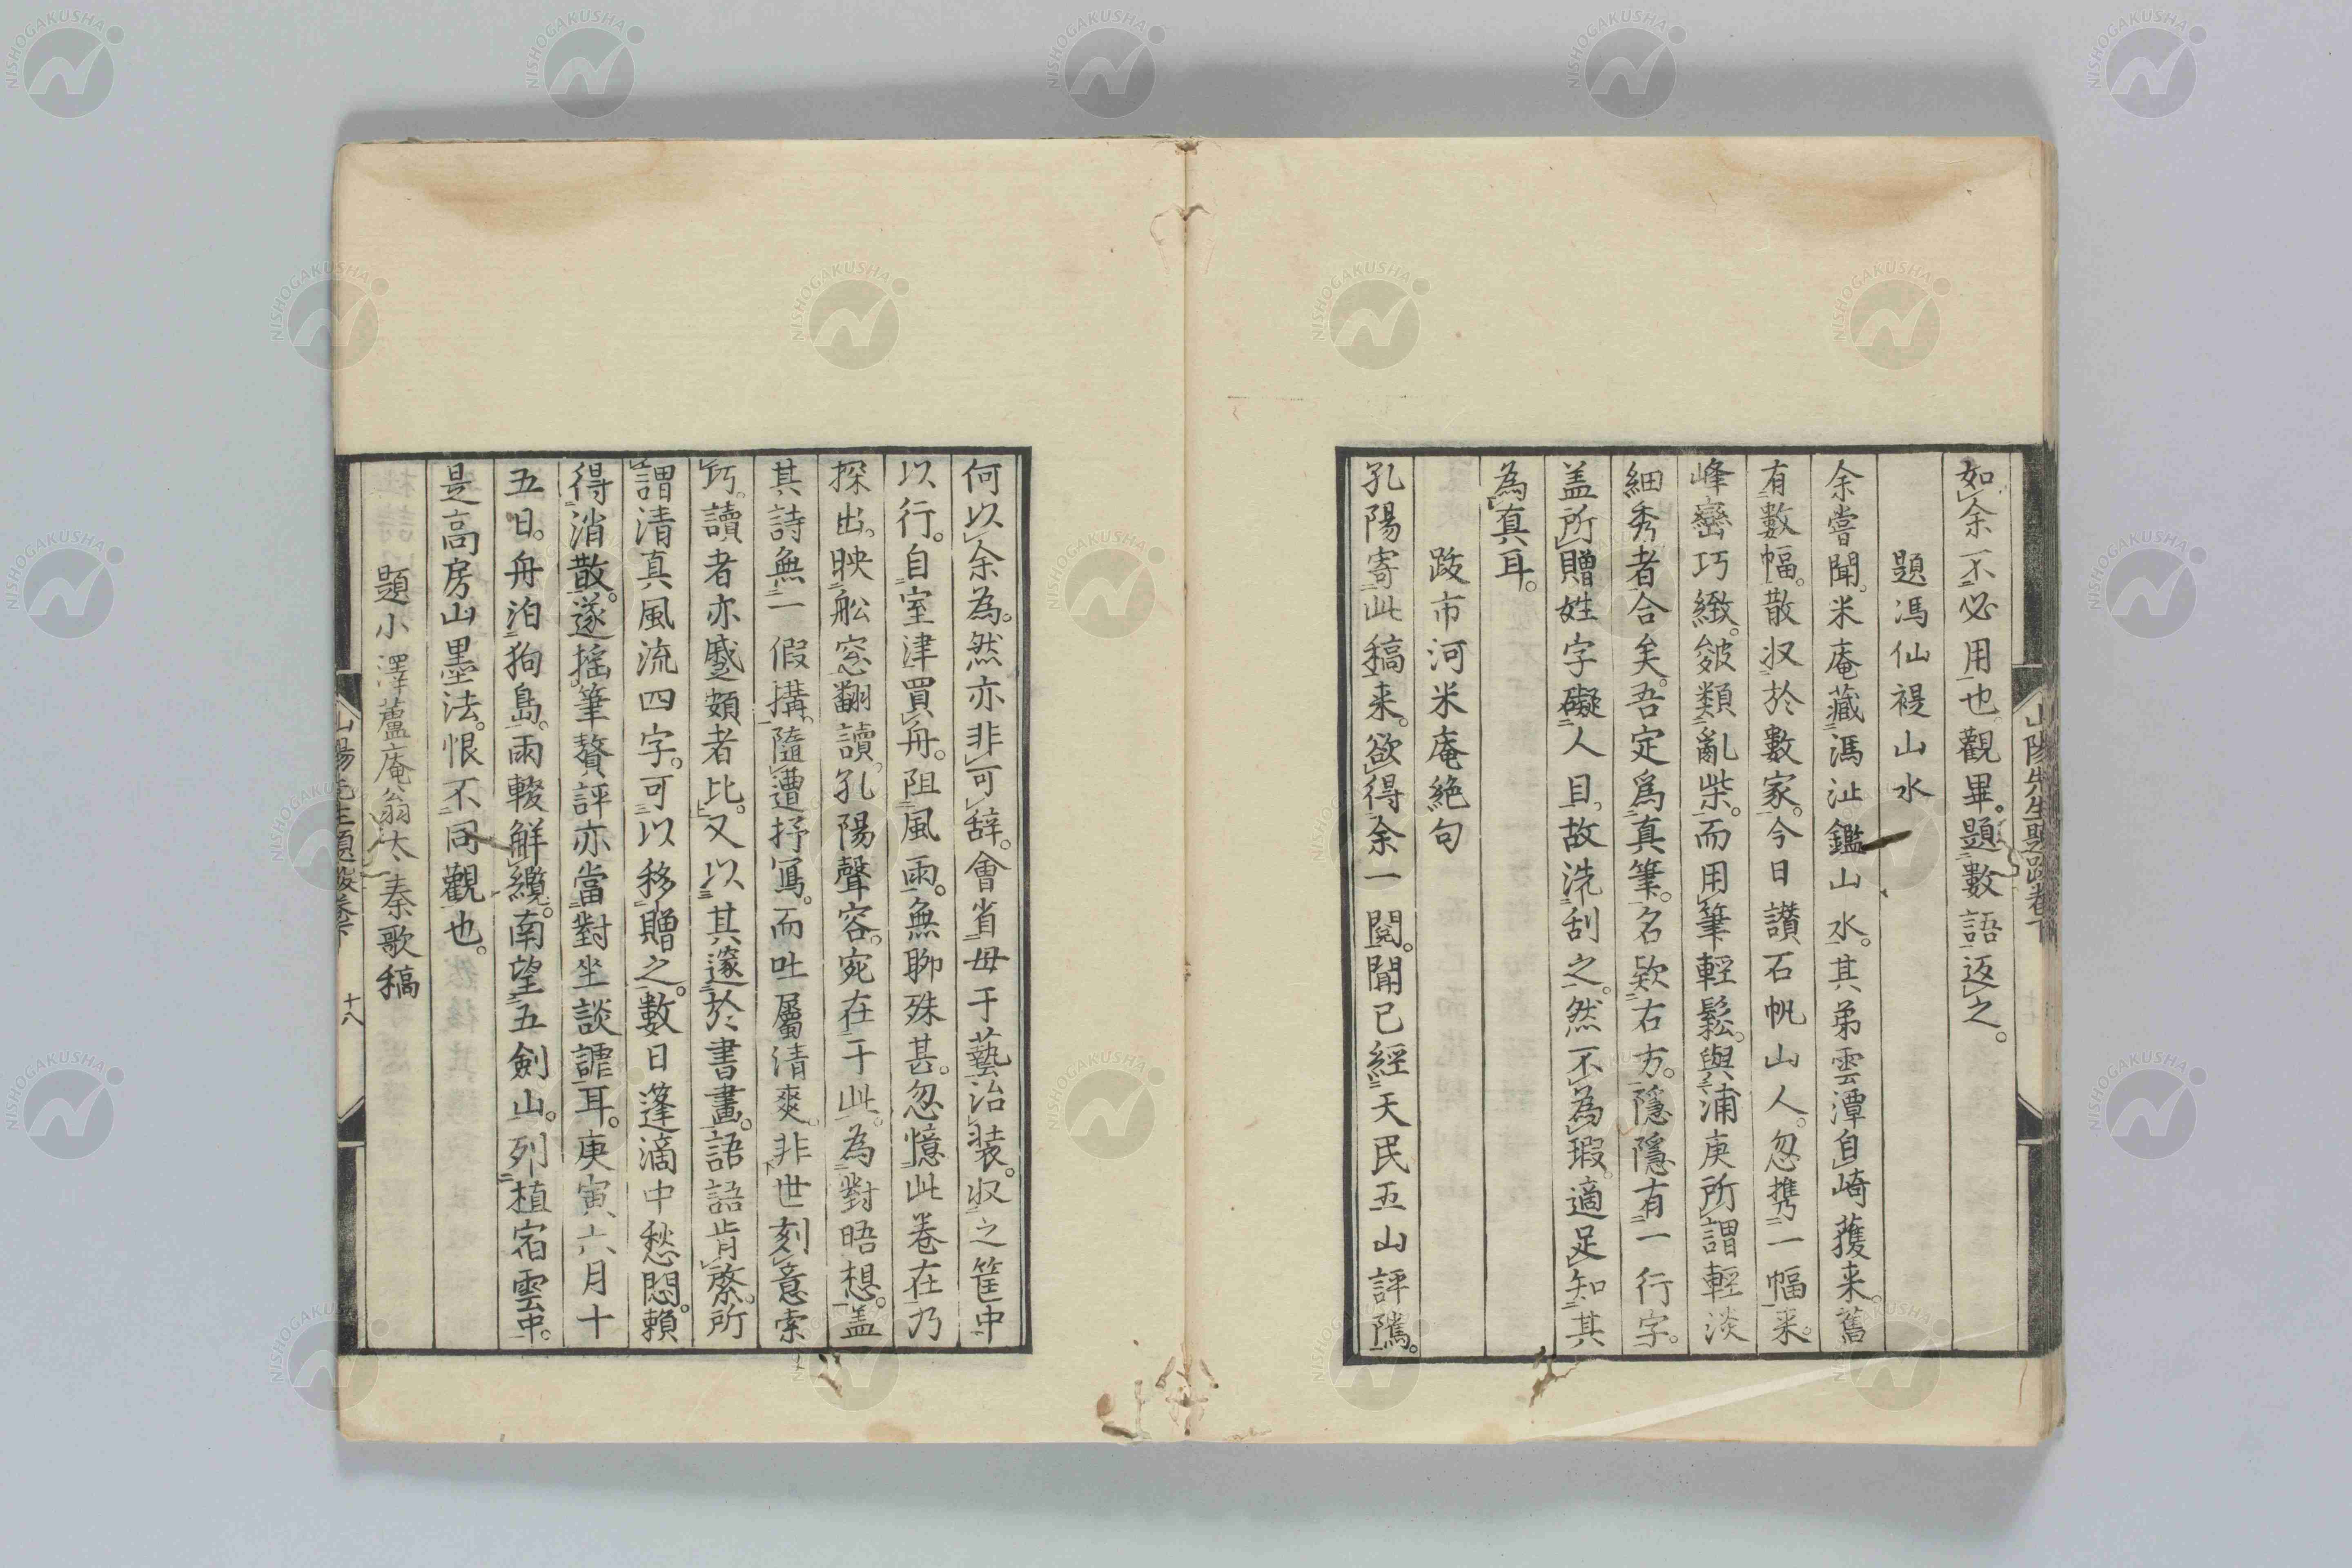 山陽先生題跋卷下
如余不必用也。觀畢。題數語返之。
題馮仙褆山水
余嘗聞。米庵藏馮沚鑑山水。其弟雲潭自崎獲来。舊
有數幅。散收於數家。今日讃石帆山人。忽携一幅来。
峰巒巧緻。皴類亂柴。而用筆輕鬆。與浦庚所謂輕淡
細秀者合矣。吾定爲真筆。名欵右方。隱隱有一行字。
盖所贈姓字礙人目。故洗刮之。然不為瑕。適足知其
為真耳。
跋市河米庵絶句
孔陽寄此稿来。欲得余一閲。聞已經天民五山評隲。
何以余為。然亦非可辞。會省毋于藝治装。収之筐中
以行。自室津買舟。阻風雨。無聊殊甚。忽憶此巻在乃
探出。映舩窓翻讀。孔陽聲容。宛在于此。為對晤想。盖
其詩無一假搆。隨遭抒寫。而吐屬清爽。非世刻意索
巧。讀者亦蹙頞者比。又以其邃於書畫。語語肯綮。所
謂清真風流四字。可以移贈之。數日篷滴中愁悶。賴
得消散。遂揺筆贅評亦當對坐談謔耳。庚寅六月十
五日。舟泊狗島。雨輟解纜。南望五剣山。列植宿雲中。
是高房山墨法。恨不同觀也。
題小澤蘆庵翁太秦歌稿
山陽先生題跋卷下 十八